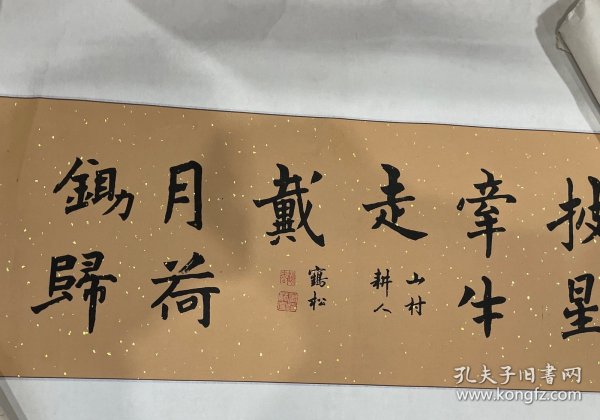 披星
牽牛
走
山村
耕人
戴
鶴松
月荷
鋤歸
孔夫子旧书网
www.kongfz.com